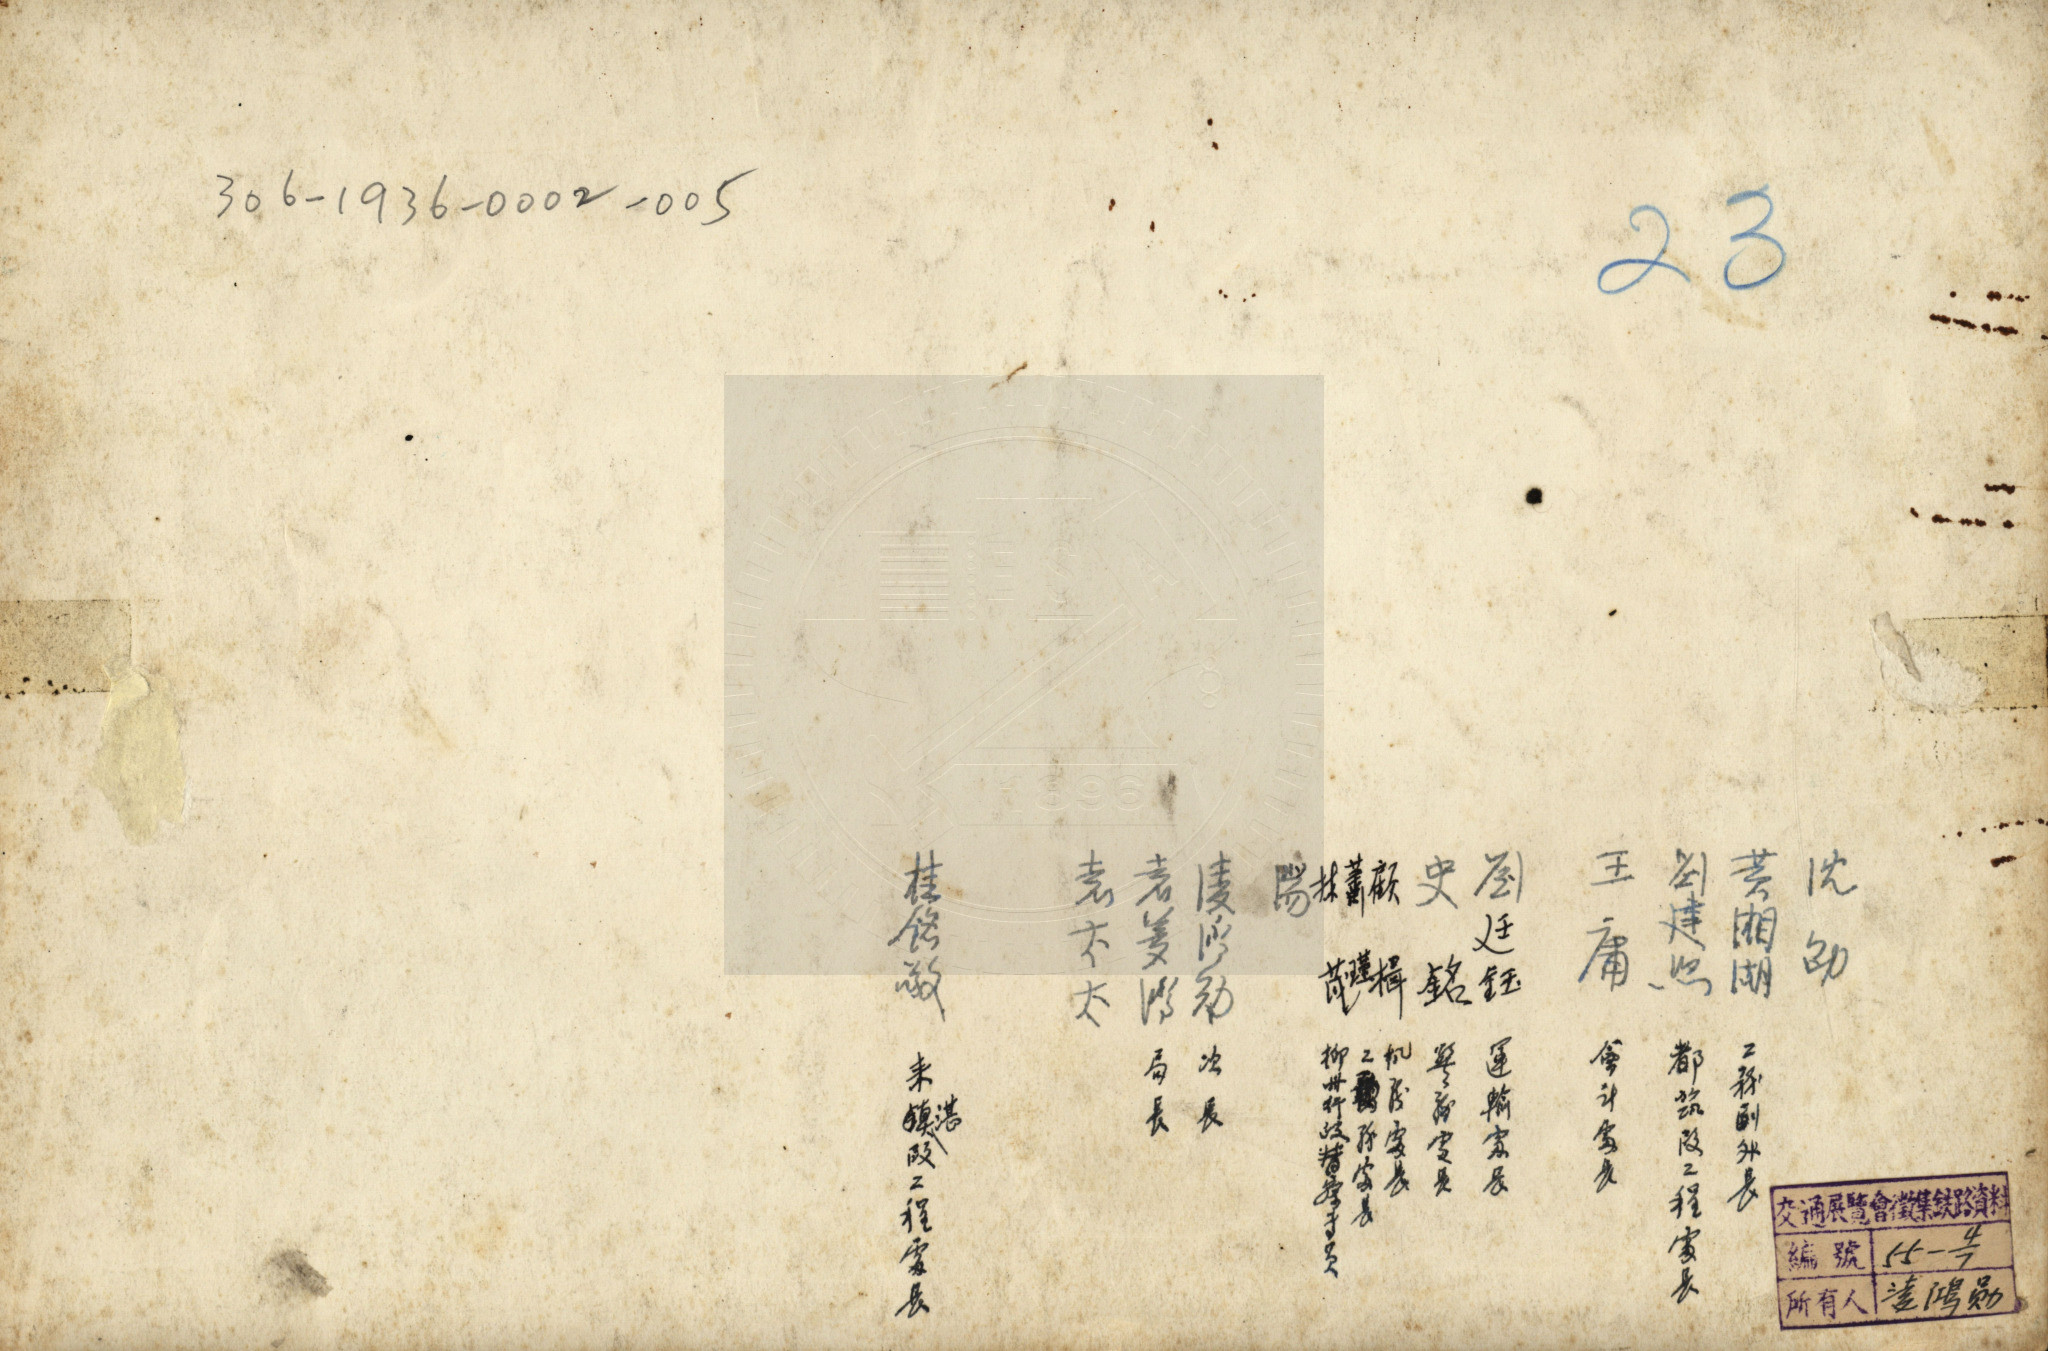 306-1936-0002-005
23
沈 劭
黃湘湖 工務副処長
劉建熙 都筑段工程處長
王庸 會計處長
劉廷鈺 運輸處長
史銘 警務處長
顧楫 机務處長
蕭瑾 工務處長
林茂 柳州行政督察专員
凌鴻勛 次長
袁夢鴻 局長
袁太太
桂銘敬 來湛段工程處長
交通展覽會徵集鉄路資料
編號 55-4/7
所有人 凌鴻勛
1896